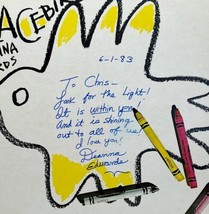 ACEBI
INA
RDS
6-1-83
To Chris—
Look for the Light—!
It is within you!
And it is shining
out to all of us!
I love you!
Deanna
Edwards